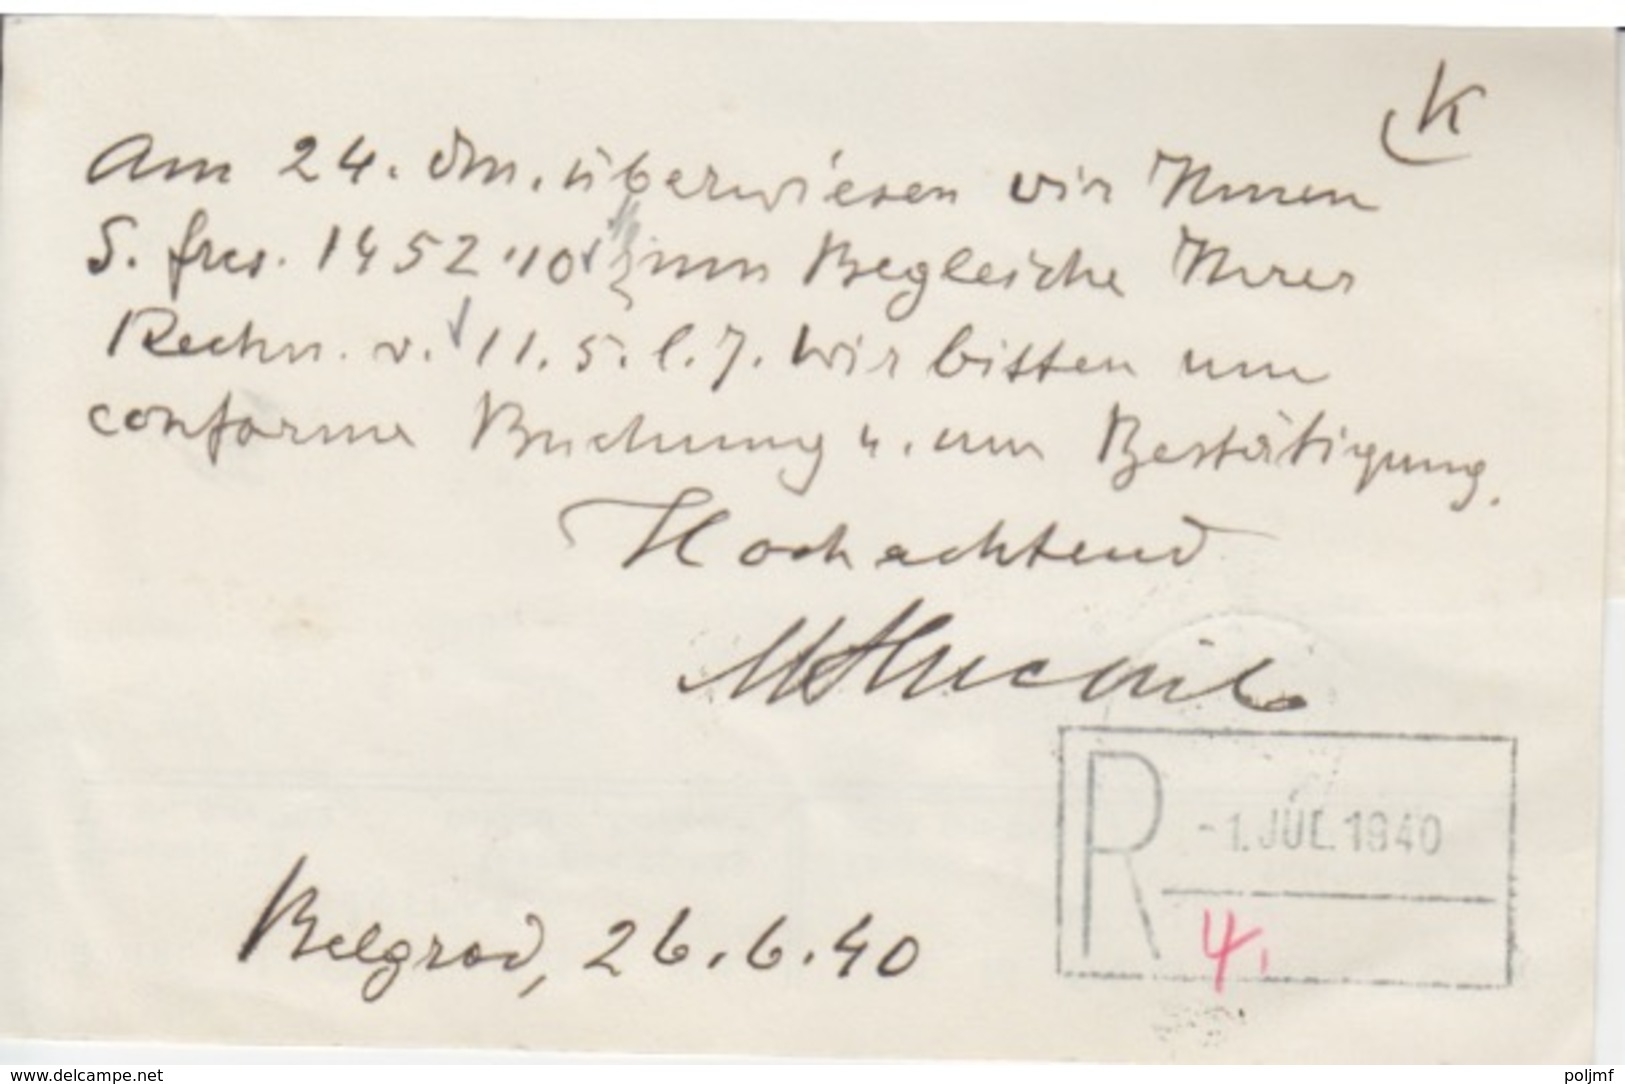 K
Am 24. dm. überwiesen wir Ihnen
S. frcs. 1452.10 zum Begleiche Ihrer
Rechn. v. 11.5. l. J. Wir bitten um
conforme Buchung u. um Bestätigung.
Hochachtend
Belgrad, 26.6.40
R -1. JUL. 1940
4.
www.delcampe.net
poljmf